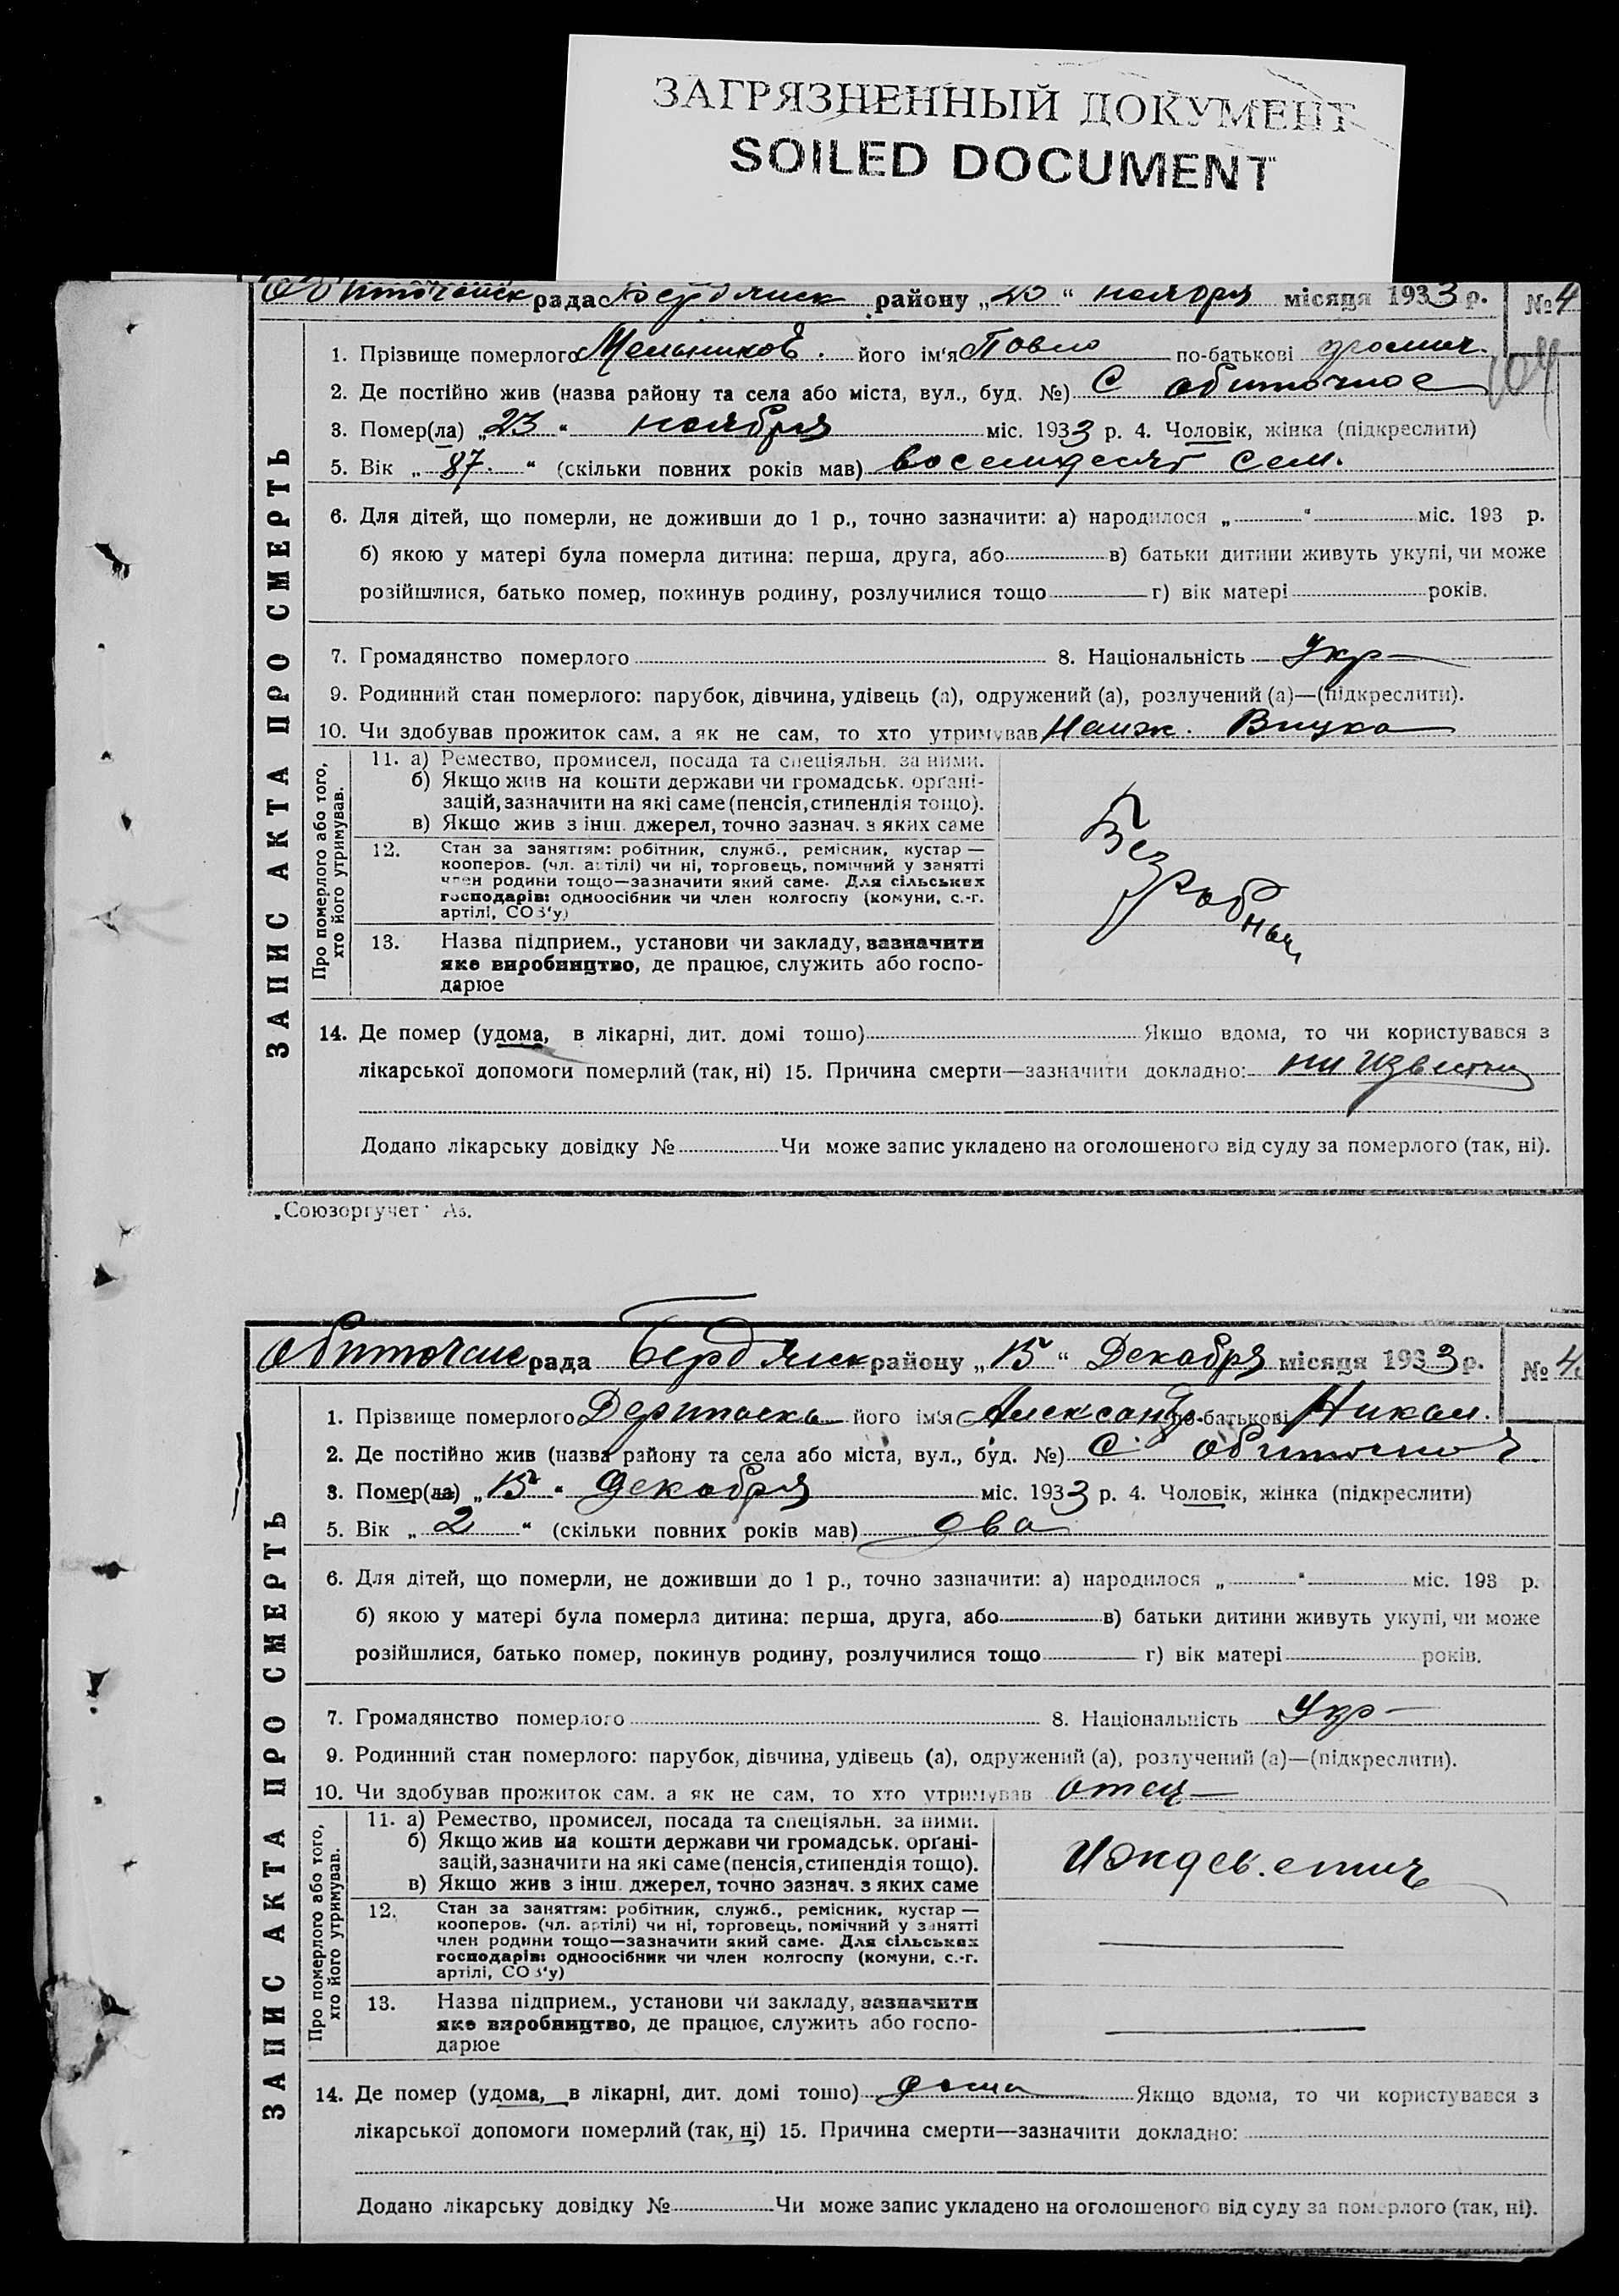 ЗАГРЯЗНЕННЫЙ ДОКУМЕНТ
SOILED DOCUMENT
рада Бердянск району „ “ ноября місяця 1933 р. № 4
1. Прізвище померлого Мельников. його ім'я Повло по-батькові
104
2. Де постійно жив (назва району та села або міста, вул., буд. №) С Обиточное
3. Помер(ла) „23“ ноября міс. 1933 р. 4. Чоловік, жінка (підкреслити)
5. Вік „87.“ (скільки повних років мав) восемдесят сем.
6. Для дітей, що померли, не доживши до 1 р., точно зазначити: а) народилося „ “ міс. 193 р.
б) якою у матері була померла дитина: перша, друга, або в) батьки дитини живуть укупі, чи може
розійшлися, батько помер, покинув родину, розлучилися тощо г) вік матері років.
7. Громадянство померлого 8. Національність Укр
9. Родинний стан померлого: парубок, дівчина, удівець (а), одружений (а), розлучений (а)—(підкреслити).
10. Чи здобував прожиток сам. а як не сам, то хто утримував
ЗАПИС АКТА ПРО СМЕРТЬ
Про померлого або того,
хто його утримував.
11. а) Ремество, промисел, посада та спеціяльн. за ними.
б) Якщо жив на кошти держави чи громадськ. орґані-
зацій, зазначити на які саме (пенсія, стипендія тощо).
в) Якщо жив з інш. джерел, точно зазнач. з яких саме
12. Стан за заняттям: робітник, служб., ремісник, кустар —
кооперов. (чл. артілі) чи ні, торговець, помічний у занятті
член родини тощо—зазначити який саме. Для сільських
господарів: одноосібник чи член колгоспу (комуни, с.-г.
артілі, СОЗ'у)
13. Назва підприєм., установи чи закладу, зазначити
яке виробництво, де працює, служить або госпо-
дарює
14. Де помер (удома, в лікарні, дит. домі тошо) Якщо вдома, то чи користувався з
лікарської допомоги померлий (так, ні) 15. Причина смерти—зазначити докладно: ни известно
Додано лікарську довідку № Чи може запис укладено на оголошеного від суду за померлого (так, ні).
„Союзоргучет“ Аз.
рада Бердянск району „15“ Декабря місяця 1933 р. № 4
1. Прізвище померлого Дерипаска його ім'я Александ. по-батькові Никол.
2. Де постійно жив (назва району та села або міста, вул., буд. №) С. Обиточное
3. Помер(ла) „15“ декабря міс. 1933 р. 4. Чоловік, жінка (підкреслити)
5. Вік „2“ (скільки повних років мав) два
6. Для дітей, що померли, не доживши до 1 р., точно зазначити: а) народилося „ “ міс. 193 р.
б) якою у матері була померла дитина: перша, друга, або в) батьки дитини живуть укупі, чи може
розійшлися, батько помер, покинув родину, розлучилися тощо г) вік матері років.
7. Громадянство померлого 8. Національність Укр
9. Родинний стан померлого: парубок, дівчина, удівець (а), одружений (а), розлучений (а)—(підкреслити).
10. Чи здобував прожиток сам. а як не сам, то хто утримував отец
ЗАПИС АКТА ПРО СМЕРТЬ
Про померлого або того,
хто його утримував.
11. а) Ремество, промисел, посада та спеціяльн. за ними.
б) Якщо жив на кошти держави чи громадськ. орґані-
зацій, зазначити на які саме (пенсія, стипендія тощо).
в) Якщо жив з інш. джерел, точно зазнач. з яких саме
12. Стан за заняттям: робітник, служб., ремісник, кустар —
кооперов. (чл. артілі) чи ні, торговець, помічний у занятті
член родини тощо—зазначити який саме. Для сільських
господарів: одноосібник чи член колгоспу (комуни, с.-г.
артілі, СОЗ'у)
13. Назва підприєм., установи чи закладу, зазначити
яке виробництво, де працює, служить або госпо-
дарює
14. Де помер (удома, в лікарні, дит. домі тошо) дома Якщо вдома, то чи користувався з
лікарської допомоги померлий (так, ні) 15. Причина смерти—зазначити докладно:
Додано лікарську довідку № Чи може запис укладено на оголошеного від суду за померлого (так, ні).